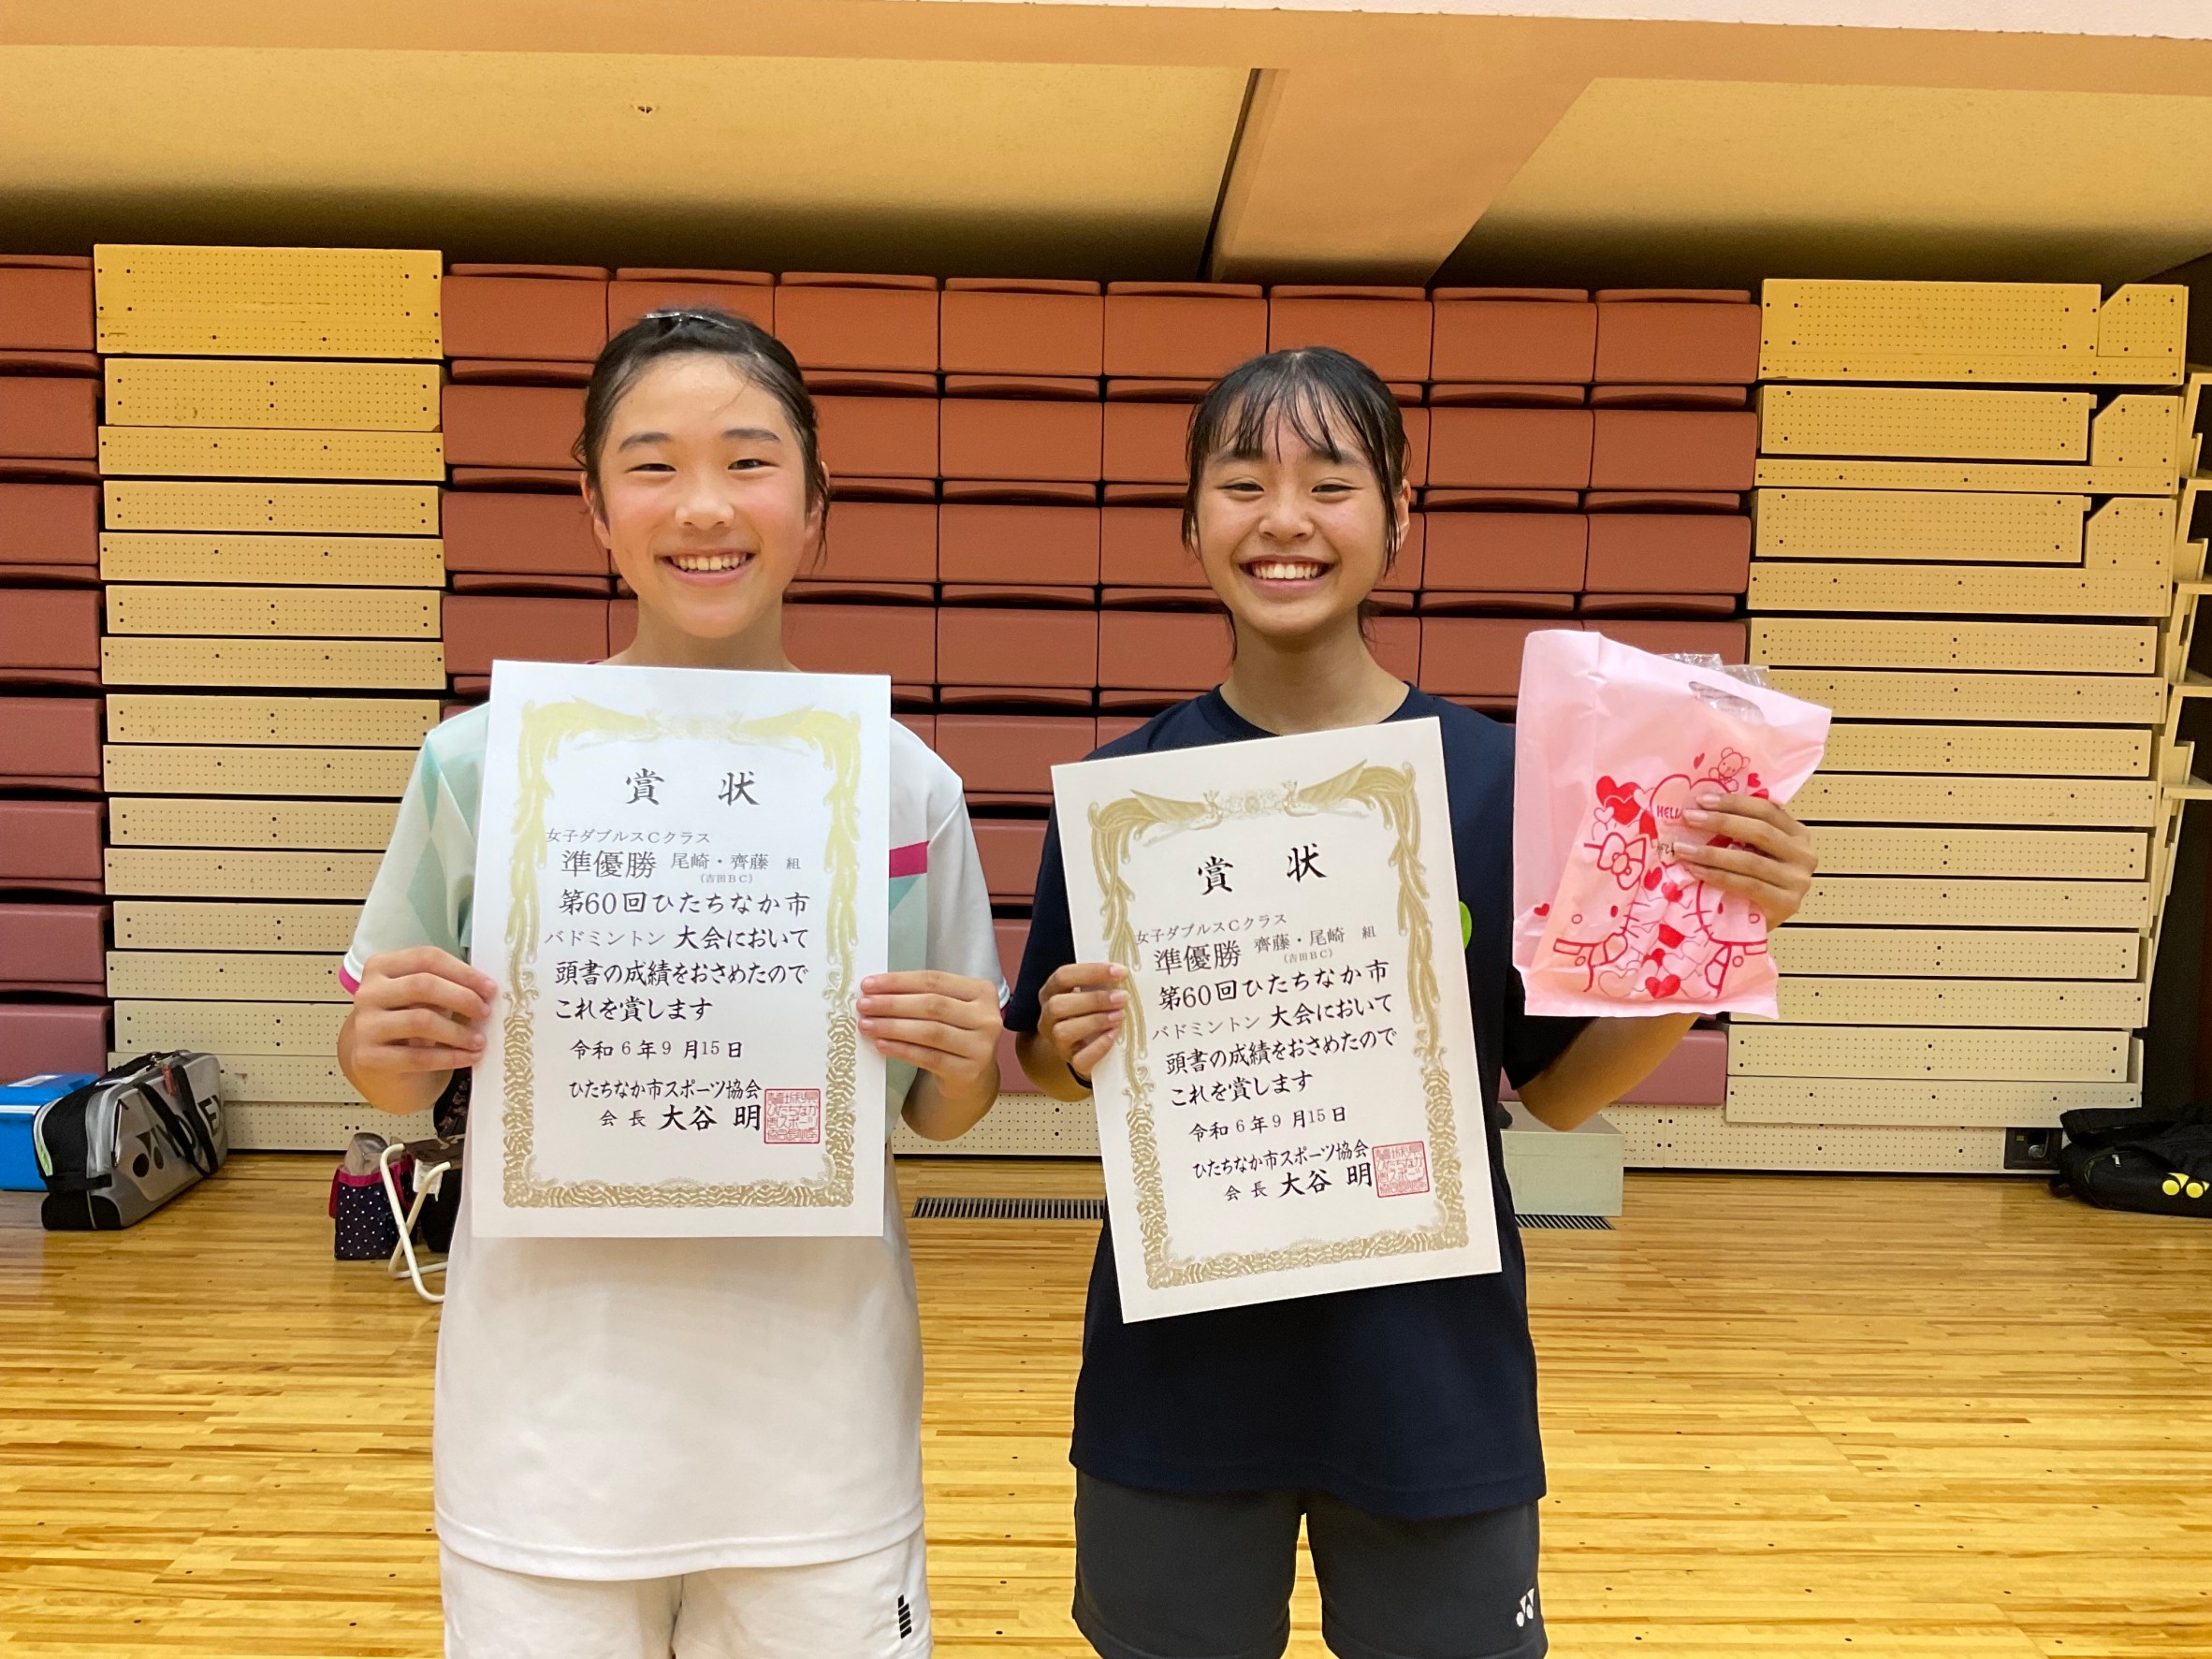 賞 状
女子ダブルスCクラス
準優勝 尾崎・齊藤 組
(吉田BC)
第60回ひたちなか市
バドミントン 大会において
頭書の成績をおさめたので
これを賞します
令和 6 年 9 月 15 日
ひたちなか市スポーツ協会
会 長 大谷 明
賞 状
女子ダブルスCクラス
準優勝 齊藤・尾崎 組
(吉田BC)
第60回ひたちなか市
バドミントン 大会において
頭書の成績をおさめたので
これを賞します
令和 6 年 9 月 15 日
ひたちなか市スポーツ協会
会 長 大谷 明